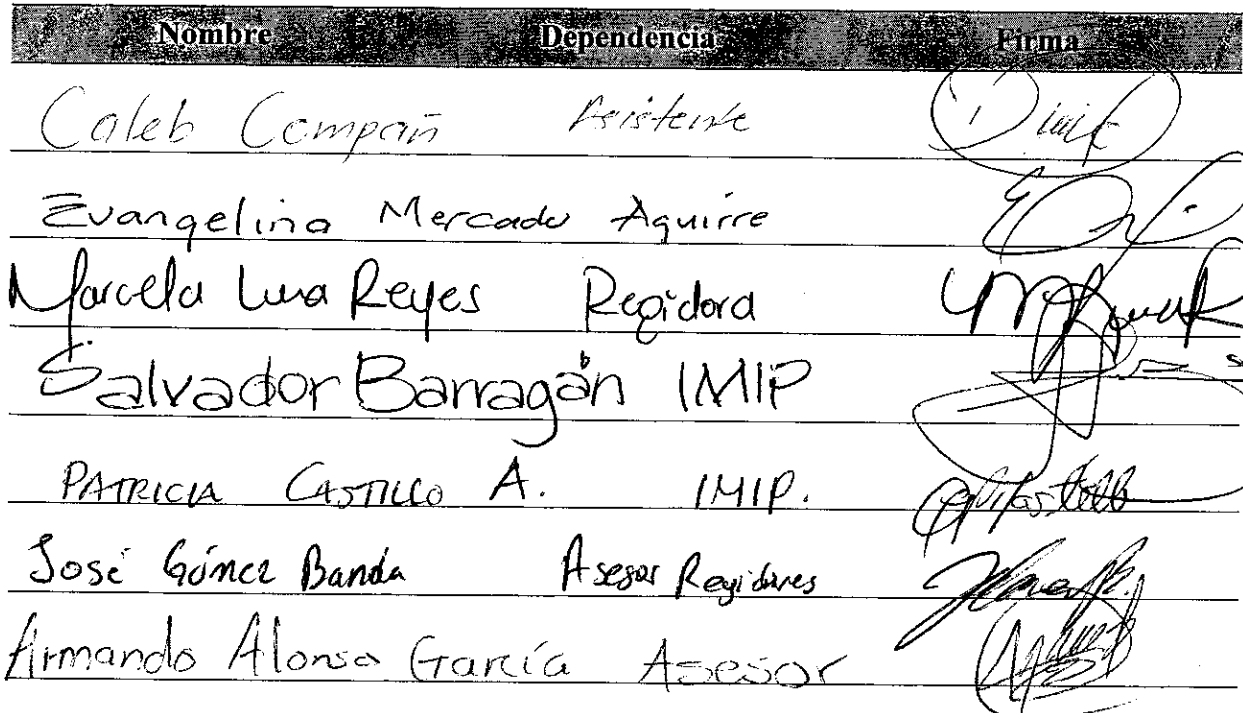 Nombre Dependencia Firma
Caleb Compañ Asistente
Evangelina Mercado Aguirre
Marcela Luna Reyes Regidora
Salvador Barragán IMIP
PATRICIA CASTILLO A. IMIP.
José Gómez Banda Asesor Regidores
Armando Alonso García Asesor